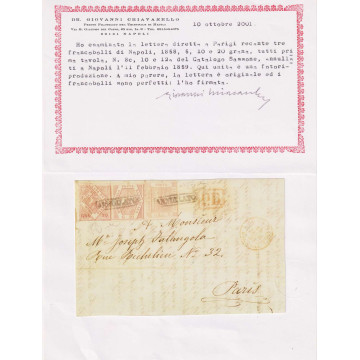 DR. GIOVANNI CHIAVARELLO
PERITO FILATELICO DEL TRIBUNALE DI NAPOLI
80121 NAPOLI
10 ottobre 2001.
Ho esaminato la lettera diretta a Parigi recante tre
francobolli di Napoli, 1858, 5, 10 e 20 grana, tutti pri
ma tavola, N. 8c, 10 e 12 del Catalogo Sassone, annulla
ti a Napoli l'11 febbraio 1859. Qui unita è una fotori-
produzione. A mio parere, la lettera è originale ed i
francobolli sono perfetti: l'ho firmata.
ANNULLATO
P.D.
A Monsieur
Mr. Joseph
Rue Richelieu No. 32.
Paris